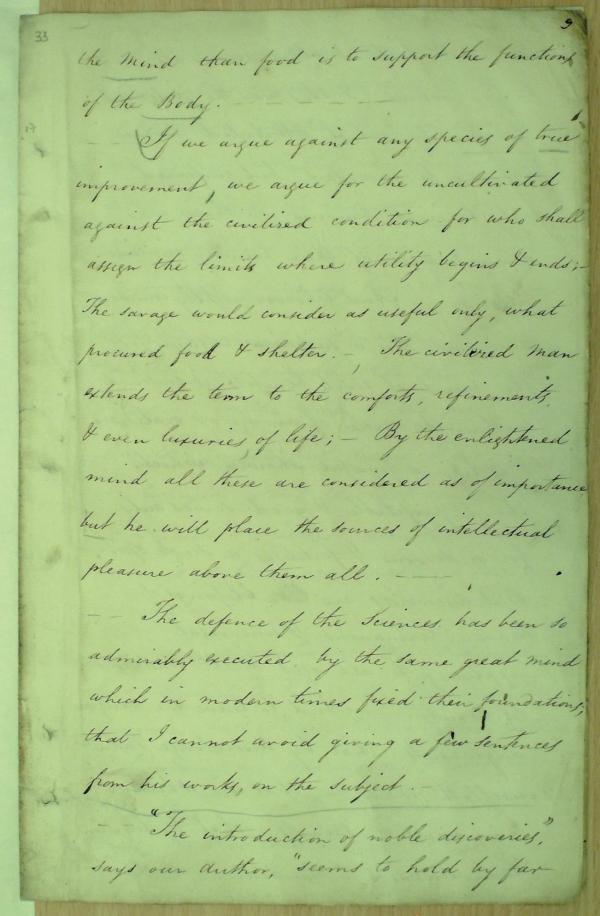 33
9
the Mind than food is to support the functions
of the Body. — — — — —
If we argue against any species of true
improvement, we argue for the uncultivated
against the civilized condition for who shall
assign the limits where utility begins & ends;—
The savage would consider as useful only, what
procured food & shelter. — The civilized Man
extends the term to the comforts, refinements,
& even luxuries, of life; — By the enlightened
mind all these are considered as of importance
but he will place the sources of intellectual
pleasure above them all. — —
— — The defence of the Sciences has been so
admirably executed by the same great mind
which in modern times fixed their foundations;
that I cannot avoid giving a few sentences
from his works, on the subject. —
— "The introduction of noble discoveries,"
says our Author, "seems to hold by far